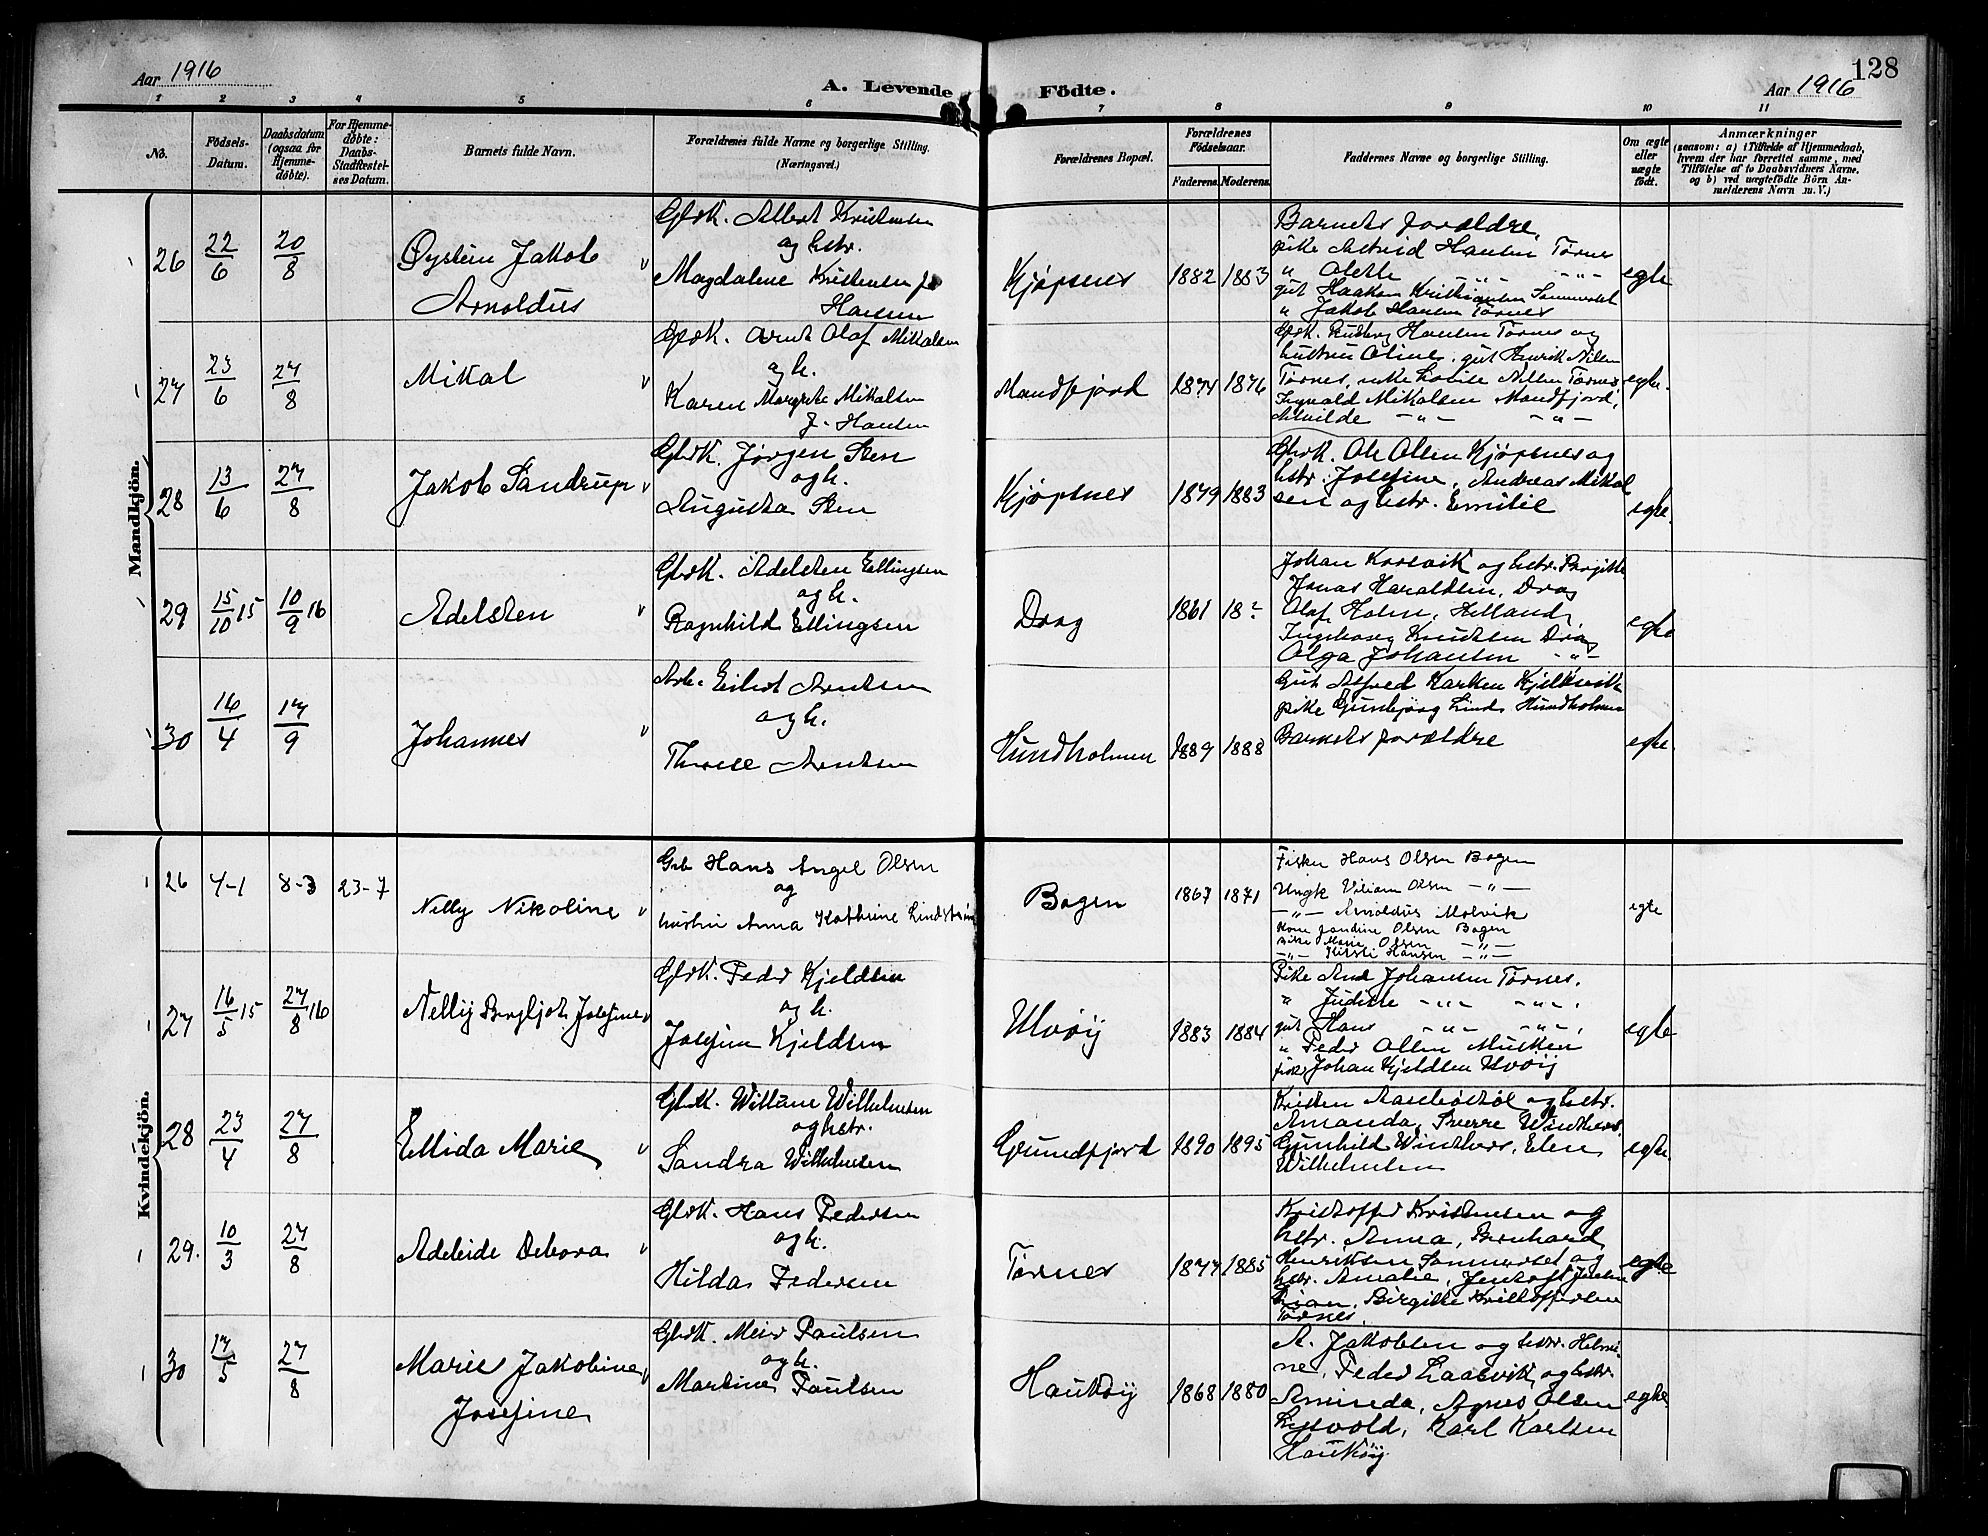 128
Aar 1916
A. Levende
Födte.
Aar 1916
1 2 3 4 5 6 7 8 9 10 11
No.
Födsels-
Datum.
Daabsdatum
(ogsaa for
Hjemme-
döbte).
For Hjemme-
döbte:
Daabs-
Stadfæstel-
ses Datum.
Barnets fulde Navn.
Forældrenes fulde Navne og borgerlige Stilling.
(Næringsvei.)
Forældrenes Bopæl.
Forældrenes
Födselsaar.
Faderens. Moderens.
Faddernes Navne og borgerlige Stilling.
Om ægte
eller
uægte
födt.
Anmærkninger
(saasom: a) i Tilfælde af Hjemmedaab,
hvem der har forrettet samme, med
Tilföielse af to Daabsvidners Navne,
og b) ved uægtefödte Börn An-
melderens Navn m. V.)
Mandkjön.
26 22/6 20/8
Øystein Jakob
Arnoldus
Gbrk. Albert Kristensen
og hstr.
Magdalene Kristensen f.
Hansen
Kjøpsnes
1882 1883
Barnets forældre,
pike Astrid Hansen Tørnes
" " "
gut Haakon Kristiansen Sommerset
" Jakob Hansen Tørnes
egte
27 23/6 27/8
Mikal
Gbrk. Arnt Olaf Mikalsen
og h.
Karen Margrete Mikalsen
f. Hansen
Mandfjord
1874 1876
Gbrk. Hansen Tørnes og
hustru Oline, gut Henrik Nilsen
Tørnes, pike Lovise Nilsen Tørnes,
Ingvald Mikalsen Mandfjord,
Alvilde — " — — " —
egte.
28 13/6 27/8
Jakob Sandrup
Gbrk. Jørgen Sten
og h.
Augusta Sten
Kjøpsnes
1879 1883
Gbrk. Ole Olsen Kjøpsnes og
hstr. Josefine, Andreas Mikal
sen og hstr. Emilie
egte.
29 15/10 15 10/9 16
Adelsten
Gbrk. Adelsten Ellingsen
og h.
Ragnhild Ellingsen
Drag
1861 18?
Johan Korsvik og hstr. Birgitte
Jonas Haraldsen, Drag
Olaf Holm, Helland,
Ingeborg Knudsen Drag
Olga Johansen — " —
egte
30 16/4 17/9
Johannes
Arb. Eilert Arntsen
og h.
Therese Arntsen
Hundholmen
1889 1888
Gut Alfred Karlsen Kjelkvik
pike Gunbjørg Lind Hundholmen
Barnets forældre
egte.
Kvindekjön.
26 4-1 8-3 23-7
Nelly Nikoline
Grb Hans Angel Olsen
og
hustru Anna Kathrine Lindstrøm
Bogen
1867 1871
Fisker Hans Olsen Bogen
Ungk Viliam Olsen — " —
— " — Arnoldus Molvik
Kone Jondine Olsen Bogen
Pike Marie Olsen — " —
— " — Kirsti Hansen — " —
egte
27 16/5 15 27/8 16
Nelly Bergljot Josefine
Gbrk. Peder Kjeldsen
og h.
Josefine Kjeldsen
Ulvøy
1883 1884
Pike And Johansen Tørnes.
" Judite — " — — " —
gut Hans — " — — " —
" Peder Olsen Musken
fisk. Johan Kjeldsen Ulvøy
egte
28 23/4 27/8
Ellida Marie
Gbrk. William Wilhelmsen
og hstr.
Sandra Wilhelmsen
Grundfjord
1890 1895
Kristen Aasebøstøl og hstr.
Amanda, Sverre Winthers,
Gunhild Winthers, Elen
Wilhelmsen
egte.
29. 10/3 27/8
Adeleide Debora
Gbrk. Hans Pedersen
og h.
Hilda Pedersen
Tørnes
1877 1885
Kristoffer Kristensen og
hstr. Anna, Bernhard
Henriksen Sommerset og
hstr. Amalie, Jentoft Jensen
Birgitte Kristoffersen
Tørnes.
egte
30 17/5 27/8
Marie Jakobine
Josefine
Gbrk. Meier Paulsen
og h.
Martine Paulsen
Haukøy
1868 1880
A. Jakobsen og hstr. Helmi-
ne, Peder Laasvik og hstr.
Aminda, Agnes Olsen
Lysvold, Karl Karlsen
Haukøy
egte